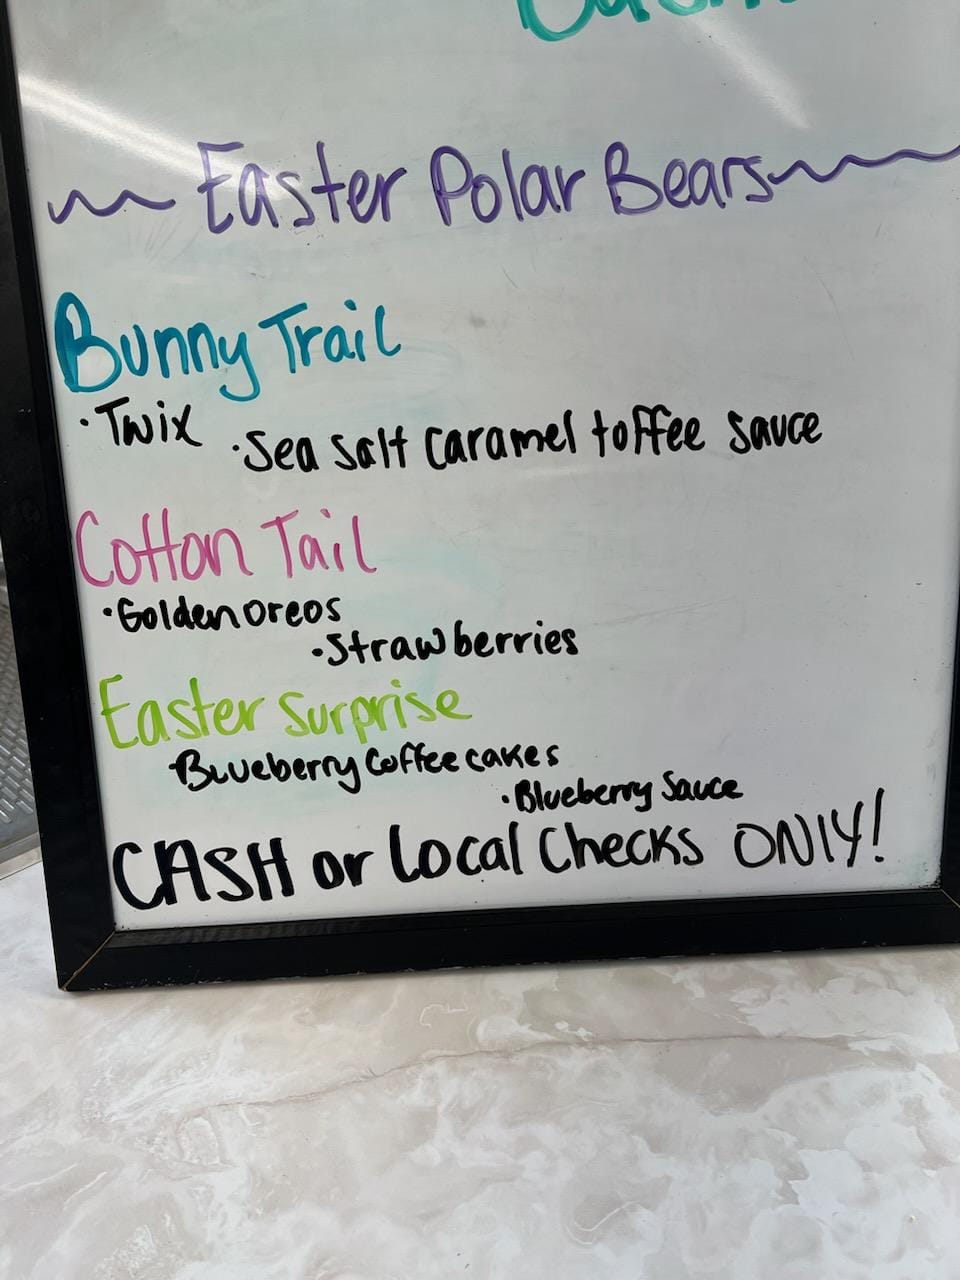 Easter Polar Bears
Bunny Trail
·Twix ·Sea Salt Caramel toffee Sauce
Cotton Tail
·Golden oreos
·Strawberries
Easter Surprise
·Blueberry Coffee cakes
·Blueberry Sauce
CASH or Local Checks ONLY!